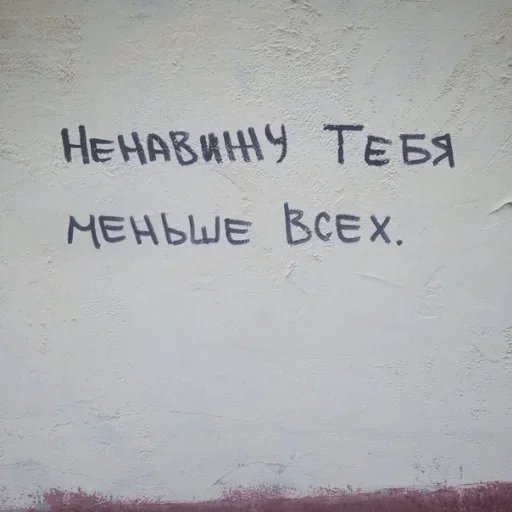 Ненавижу Тебя
меньше всех.